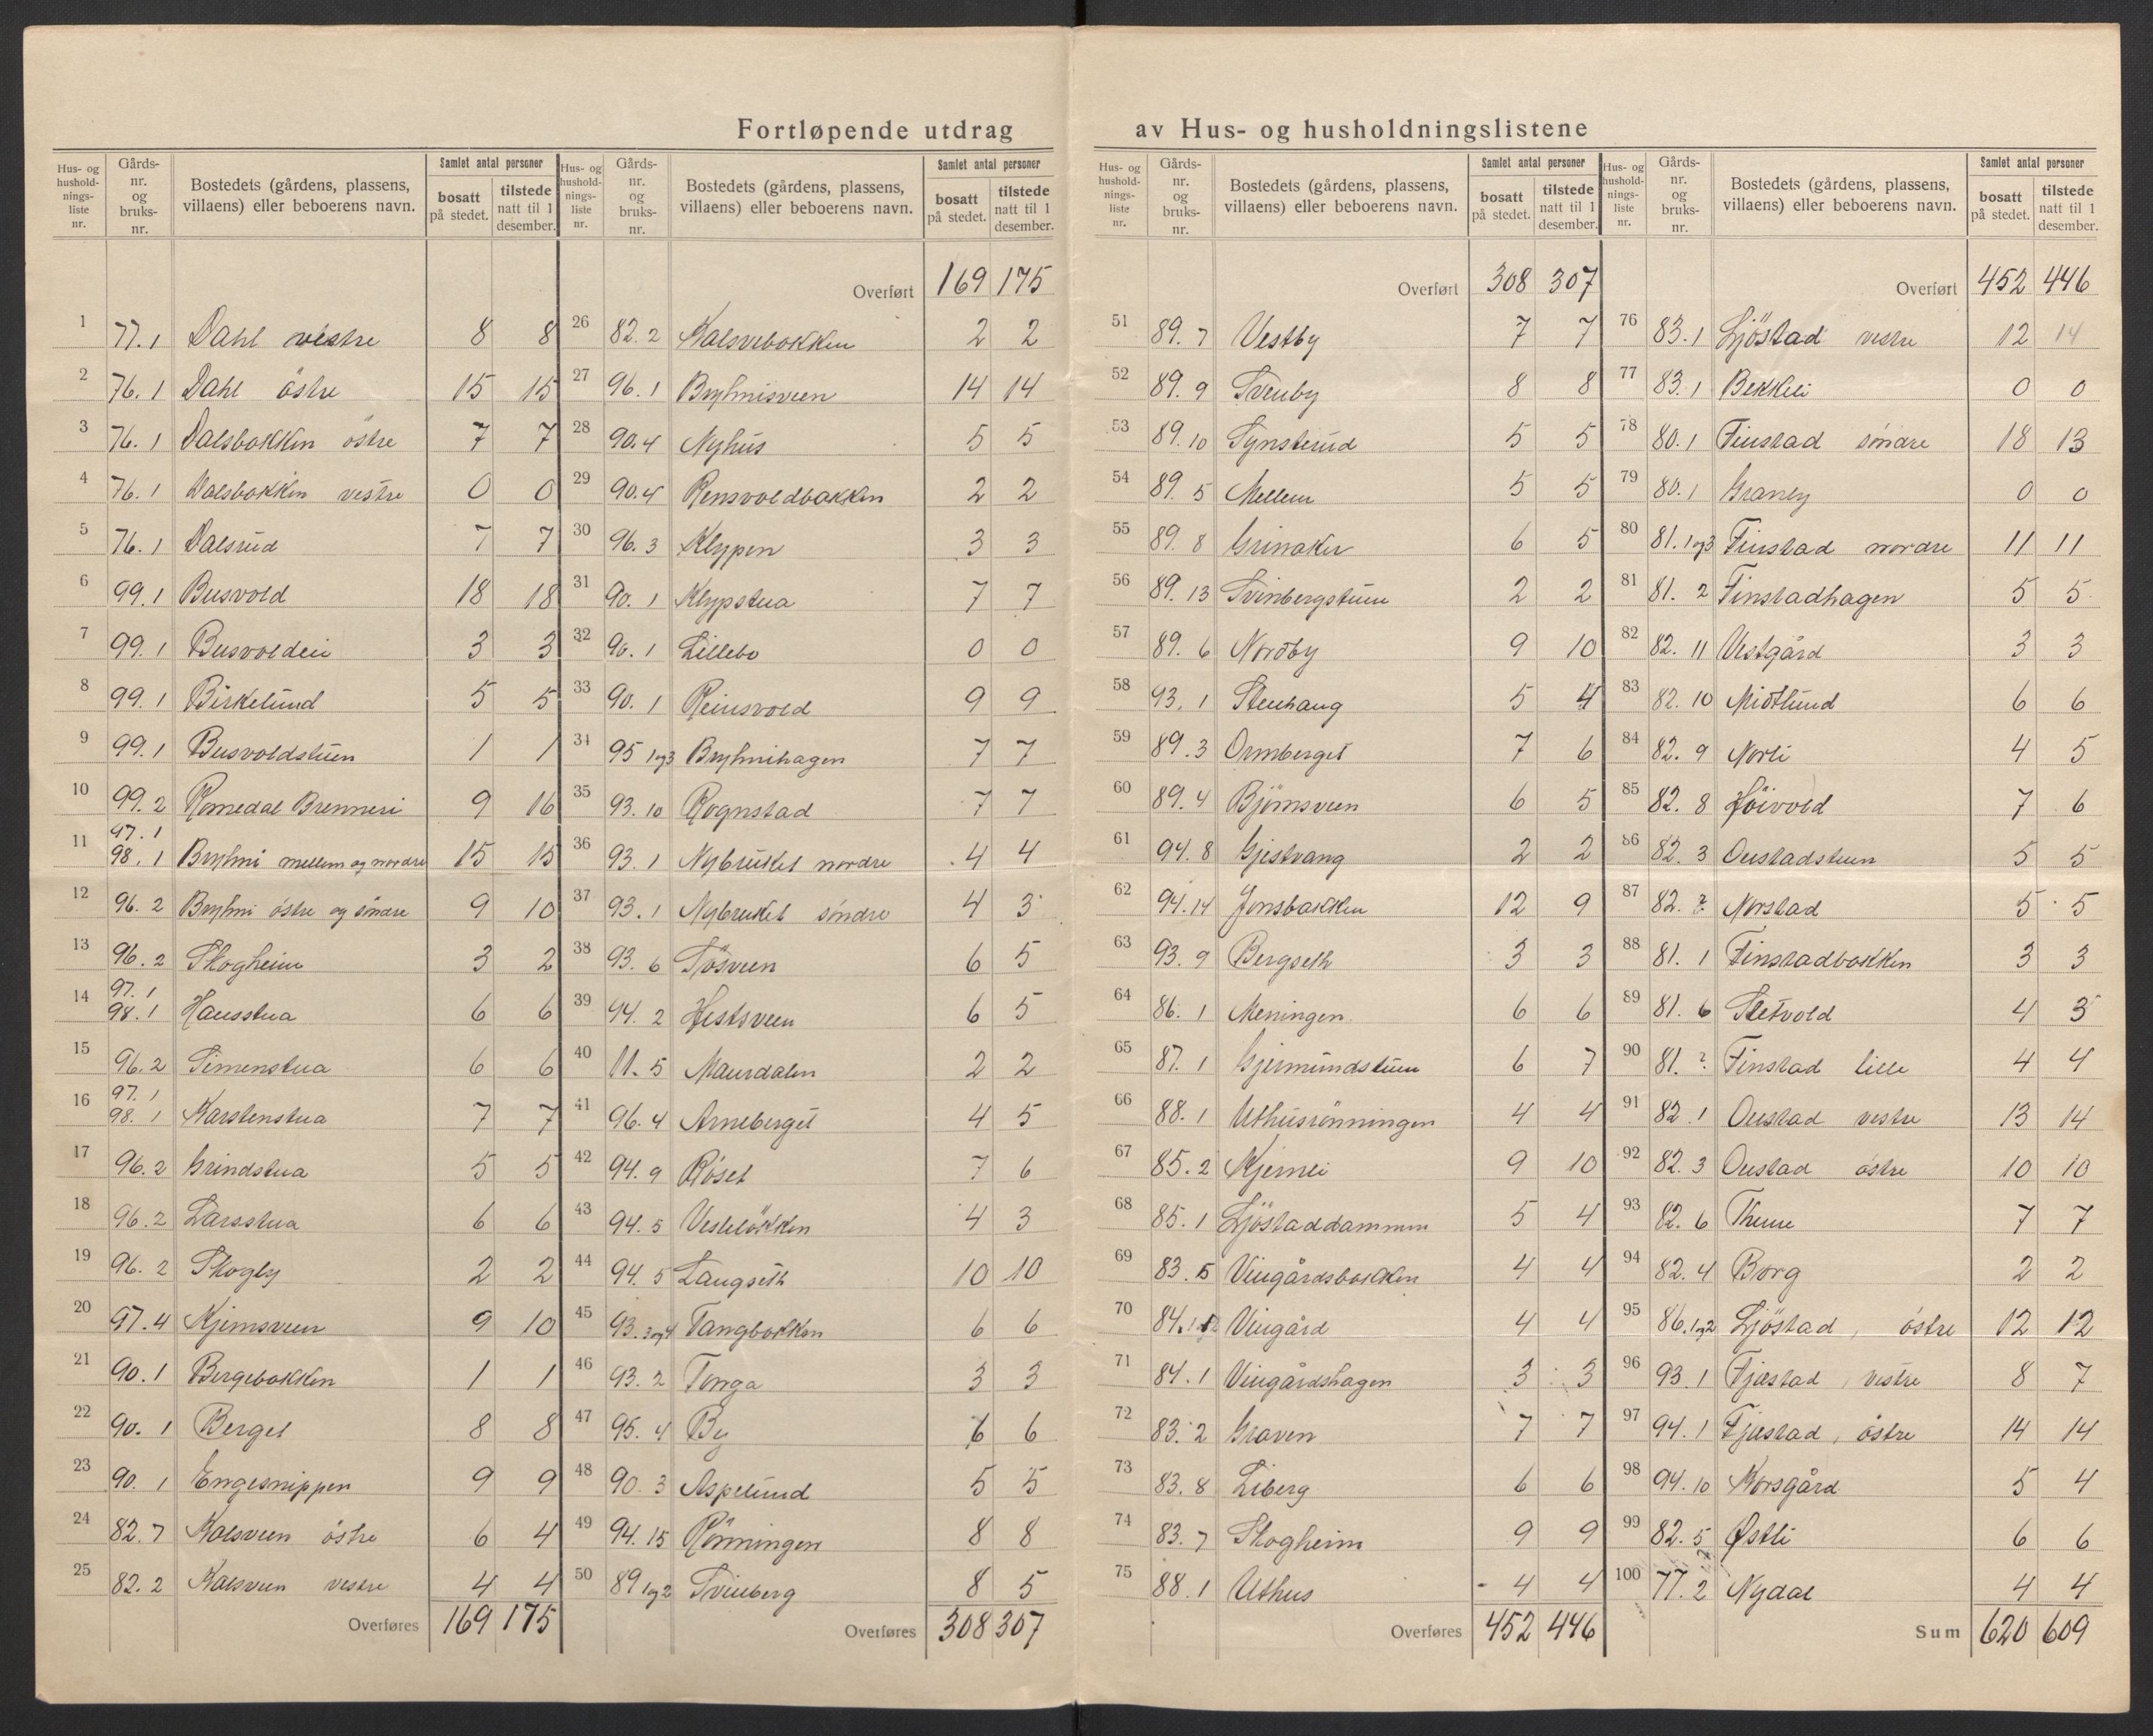 Fortløpende utdrag av Hus- og husholdningslistene
Hus- og husholdnings-liste nr. Gårds-nr. og bruks-nr. Bostedets (gårdens, plassens, villaens) eller beboerens navn. Samlet antal personer bosatt på stedet. tilstede natt til 1 desember.
1 77.1 Dahl vestre 8 8
2 76.1 Dahl östre 15 15
3 76.1 Dalsbakken östre 7 7
4 76.1 Dalsbakken vestre 0 0
5 76.1 Dalsrud 7 7
6 99.1 Busvold 18 18
7 99.1 Busvoldeie 3 3
8 99.1 Birkelund 5 5
9 99.1 Busvoldstuen 1 1
10 99.2 Romedal Brenneri 9 16
11 97.1 98.1 Bryhni mellem og nordre 15 15
12 96.2 Bryhni östre og söndre 9 10
13 96.2 Skogheim 3 2
14 97.1 98.1 Hansstua 6 6
15 96.2 Simenstua 6 6
16 97.1 98.1 Karstenstua 7 7
17 96.2 Grindstua 5 5
18 96.2 Larsstua 6 6
19 96.2 Skogly 2 2
20 97.4 Kjemsveen 9 10
21 90.1 Bergebakken 1 1
22 90.1 Berget 8 8
23 90.1 Engesnippen 9 9
24 82.7 Kalsveen östre 6 4
25 82.2 Kalsveen vestre 4 4
Overføres 169 175
Hus- og husholdnings-liste nr. Gårds-nr. og bruks-nr. Bostedets (gårdens, plassens, villaens) eller beboerens navn. Samlet antal personer bosatt på stedet. tilstede natt til 1 desember.
Overført 169 175
26 82.2 Kalsvebakken 2 2
27 96.1 Bryhnisveen 14 14
28 90.4 Nyhus 5 5
29 90.4 Rensvoldbakken 2 2
30 96.3 Klyppen 3 3
31 90.1 Klypstua 7 7
32 90.1 Lillebo 0 0
33 90.1 Reinsvold 9 9
34 95 1og3 Bryhnihagen 7 7
35 93.10 Rognstad 7 7
36 93.1 Nybruket nordre 4 4
37 93.1 Nybruket söndre 4 3
38 93.6 Tösveen 6 5
39 94.2 Hestsveen 6 5
40 11.5 Maurdalen 2 2
41 96.4 Arneberget 4 5
42 94.9 Röset 7 6
43 94.5 Veslelökken 4 3
44 94.5 Langseth 10 10
45 93.3og4 Tangbakken 6 6
46 93.2 Tonga 3 3
47 95.4 By 6 6
48 90.3 Aspelund 5 5
49 94.15 Rönningen 8 8
50 89 1og2 Tvinberg 8 5
Overføres 308 307
Hus- og husholdnings-liste nr. Gårds-nr. og bruks-nr. Bostedets (gårdens, plassens, villaens) eller beboerens navn. Samlet antal personer bosatt på stedet. tilstede natt til 1 desember.
Overført 308 307
51 89.7 Vestby 7 7
52 89.9 Tveuby 8 8
53 89.10 Tynsterud 5 5
54 89.5 Mellem 5 5
55 89.8 Grinaker 6 5
56 89.13 Tvinbergstuen 2 2
57 89.6 Nordby 9 10
58 93.1 Stenhaug 5 4
59 89.3 Ormberget 7 6
60 89.4 Björnsveen 6 5
61 94.8 Gjestvang 2 2
62 94.14 Jonsbakken 12 9
63 93.9 Bergseth 3 3
64 86.1 Meningen 6 6
65 87.1 Gjermundstuen 6 7
66 88.1 Uthusrönningen 4 4
67 85.2 Kjernli 9 10
68 85.1 Ljöstaddammen 5 4
69 83.5 Vingårdsbakken 4 4
70 84.1 Vingård 4 4
71 84.1 Vingårdshagen 3 3
72 83.2 Graven 7 7
73 83.8 Liberg 6 6
74 83.7 Skogheim 9 9
75 88.1 Uthus 4 4
Overføres 452 446
Hus- og husholdnings-liste nr. Gårds-nr. og bruks-nr. Bostedets (gårdens, plassens, villaens) eller beboerens navn. Samlet antal personer bosatt på stedet. tilstede natt til 1 desember.
Overført 452 446
76 83.1 Ljöstad vestre 12 14
77 83.1 Bekkeli 0 0
78 80.1 Finstad söndre 18 13
79 80.1 Granly 0 0
80 81.1og3 Finstad nordre 11 11
81 81.2 Finstadhagen 5 5
82 82.11 Vestgård 3 3
83 82.10 Midtlund 6 6
84 82.9 Norli 4 5
85 82.8 Höivold 7 6
86 82.3 Oustadstuen 5 5
87 82.? Norstad 5 5
88 81.1 Finstadbakken 3 3
89 81.6 Sletvold 4 3
90 81.? Finstad lille 4 4
91 82.1 Oustad vestre 13 14
92 82.3 Oustad östre 10 10
93 82.6 Thune 7 7
94 82.4 Borg 2 2
95 86.1og2 Ljöstad, östre 12 12
96 93.1 Fjæstad, vestre 8 7
97 94.1 Fjæstad, östre 14 14
98 94.10 Korsgård 5 4
99 82.5 Østli 6 6
100 77.2 Nydal 4 4
Sum 620 609